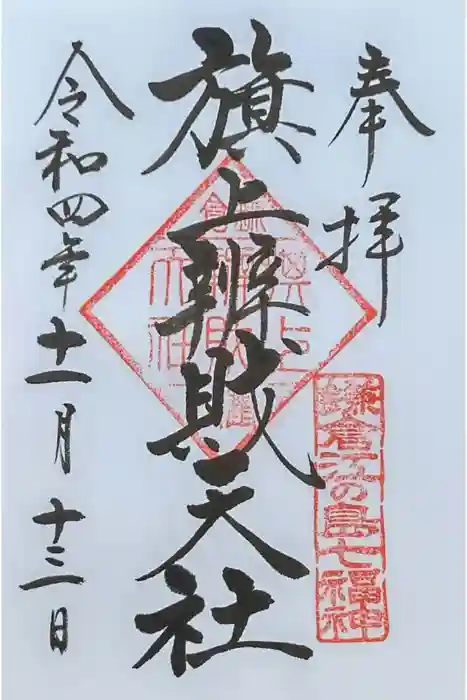 奉拝
鎌倉江の島七福神
旗上辨財天社
令和四年十一月十三日